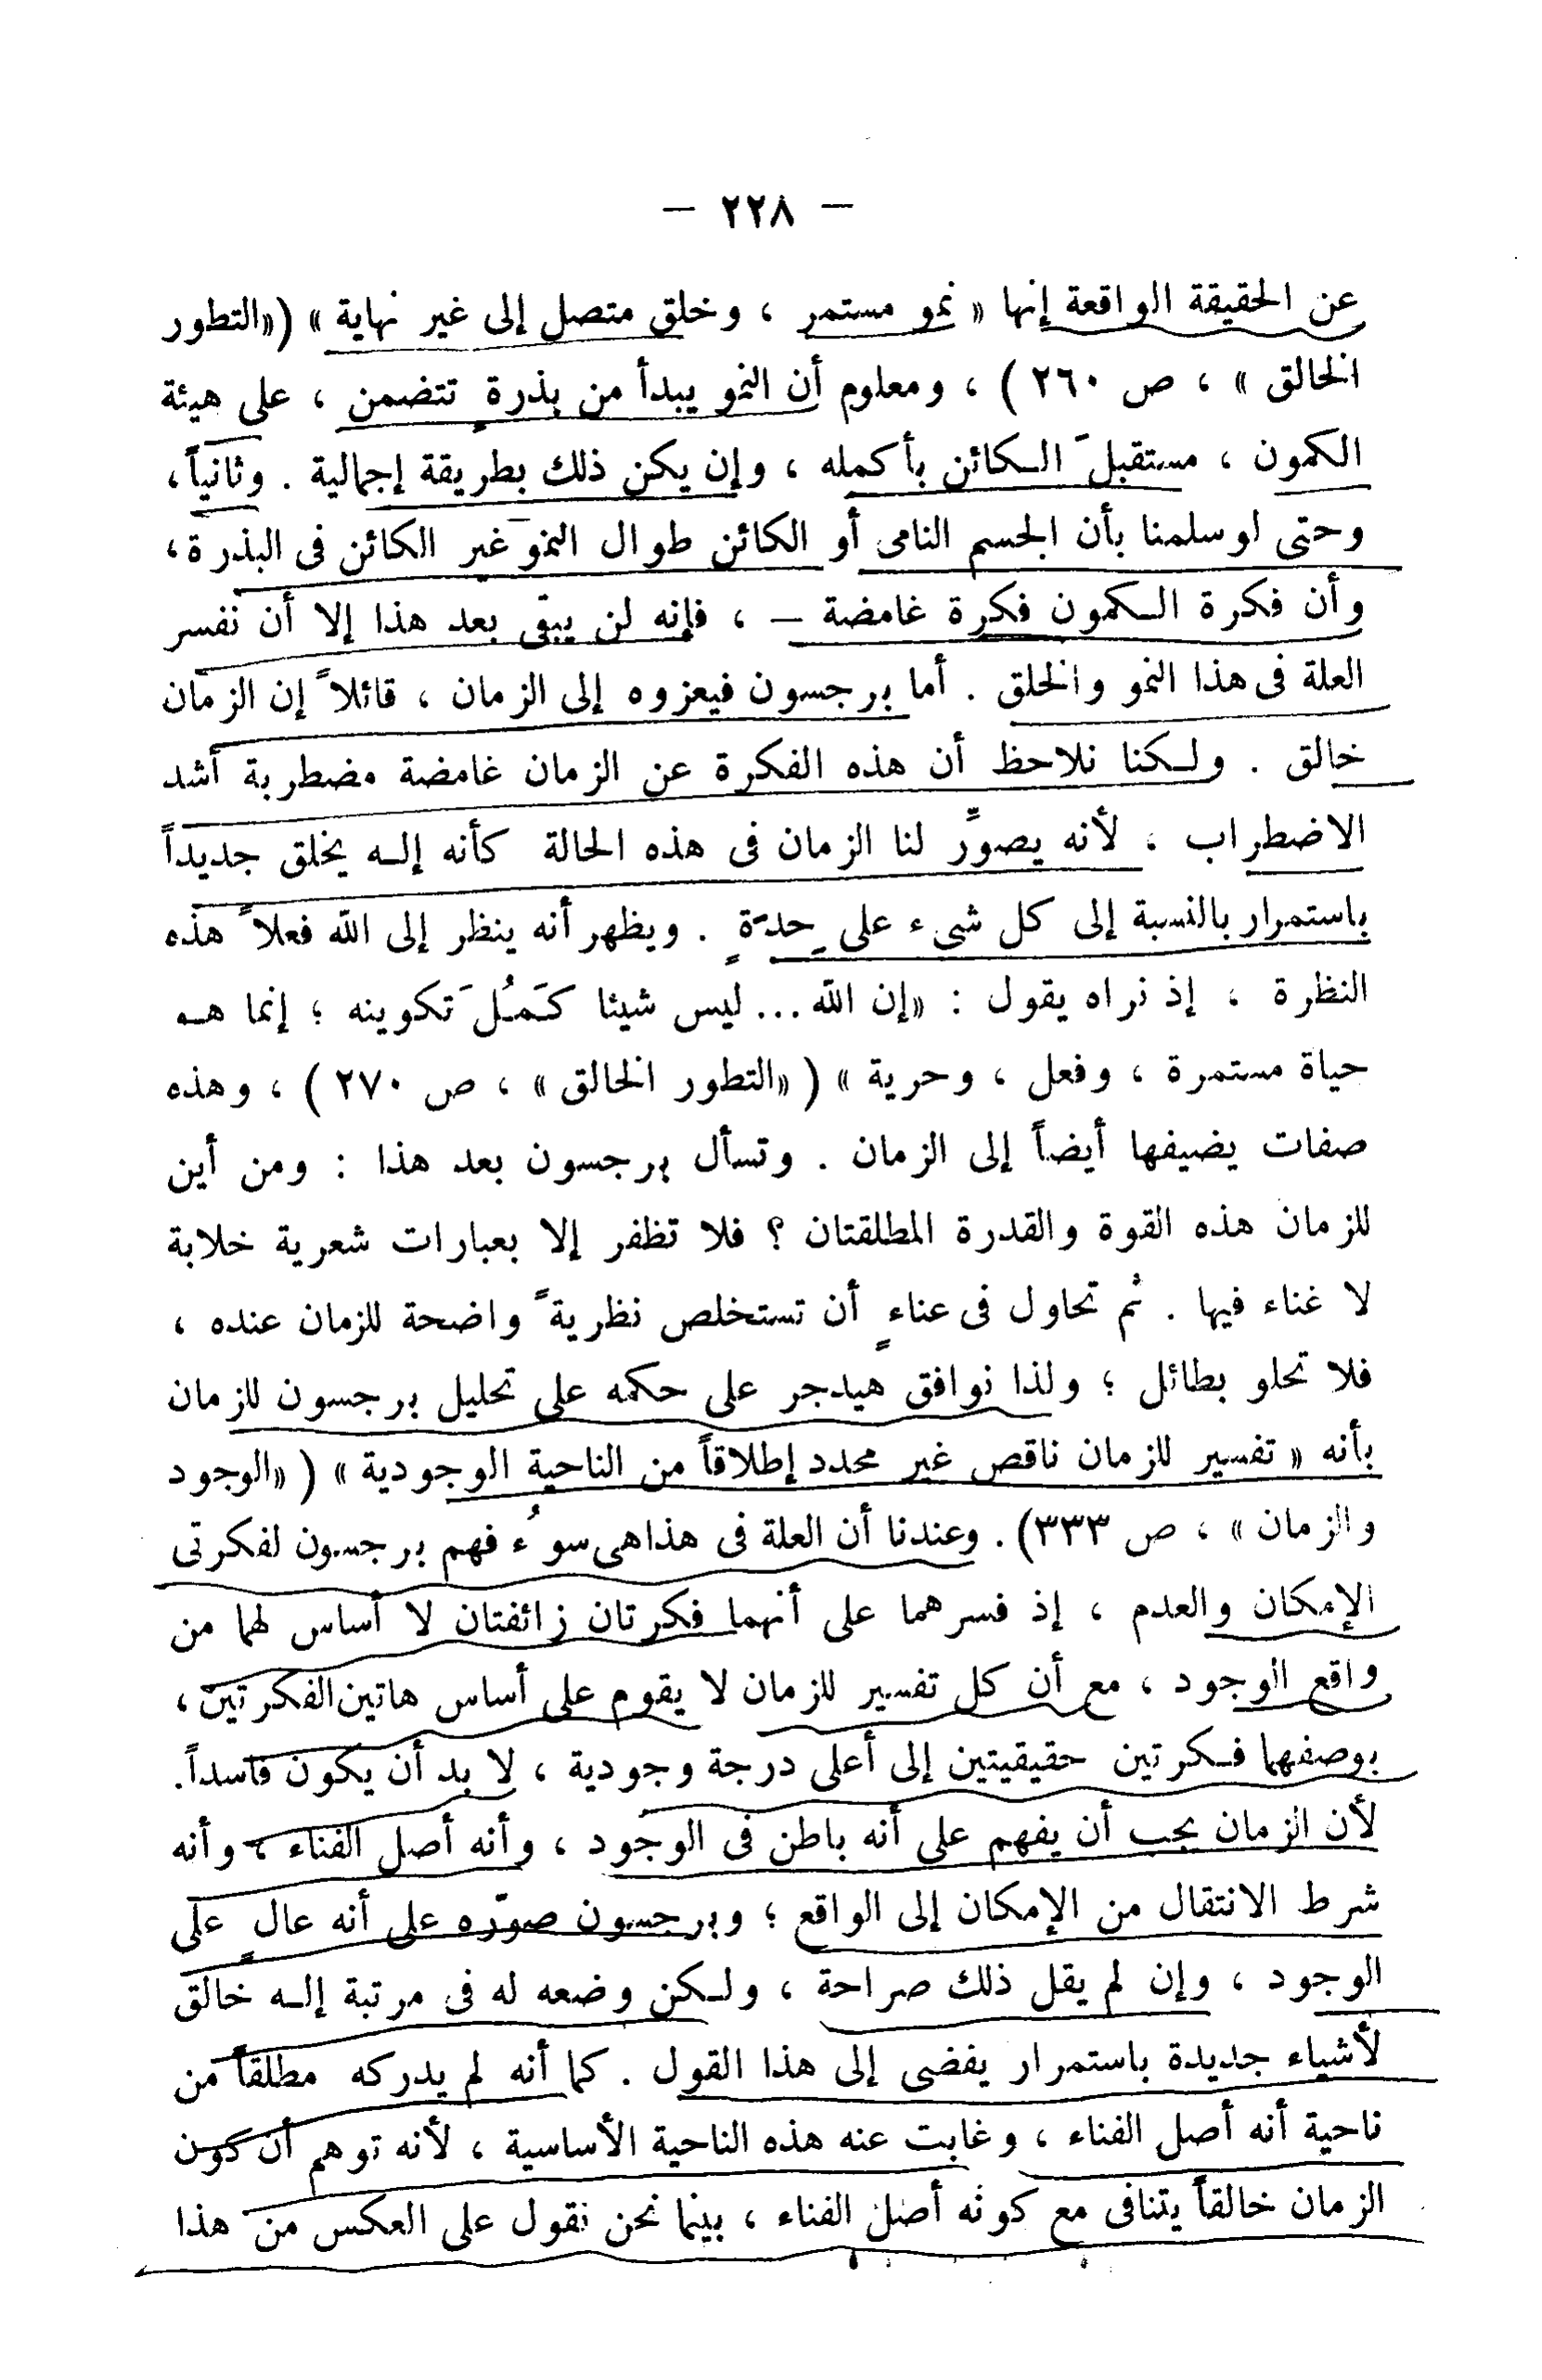 — ٢٢٨ —
عن الحقيقة الواقعة إنها « نمو مستمر ، وخلق متصل إلى غير نهاية » («التطور
الخالق » ، ص ٢٦٠ ) ، ومعلوم أن النمو يبدأ من بذرةٍ تتضمن ، على هيئة
الكمون ، مستقبلَ الكائن بأكمله ، وإن يكن ذلك بطريقة إجمالية . وثانياً ،
وحتى لو سلمنا بأن الجسم النامى أو الكائن طوال النمو غير الكائن فى البذرة ،
وأن فكرة الكمون فكرة غامضة – ، فإنه لن يبقى بعد هذا إلا أن نفسر
العلة فى هذا النمو والخلق . أما برجسون فيعزوه إلى الزمان ، قائلاً إن الزمان
خالق . ولكنا نلاحظ أن هذه الفكرة عن الزمان غامضة مضطربة أشد
الاضطراب ، لأنه يصوِّر لنا الزمان فى هذه الحالة كأنه إله يخلق جديداً
باستمرار بالنسبة إلى كل شىء على حِدَةٍ . ويظهر أنه ينظر إلى الله فعلاً هذه
النظرة ، إذ نراه يقول : «إن الله ... ليس شيئا كَمُلَ تكوينه ؛ إنما هـ
حياة مستمرة ، وفعل ، وحرية » ( «التطور الخالق » ، ص ٢٧٠ ) ، وهذه
صفات يضيفها أيضاً إلى الزمان . وتسأل برجسون بعد هذا : ومن أين
للزمان هذه القوة والقدرة المطلقتان ؟ فلا تظفر إلا بعبارات شعرية خلابة
لا غناء فيها . ثم تحاول فى عناءٍ أن تستخلص نظريةً واضحة للزمان عنده ،
فلا تحلو بطائل ؛ ولذا نوافق هيدجر على حكمه على تحليل برجسون للزمان
بأنه « تفسير للزمان ناقص غير محدد إطلاقاً من الناحية الوجودية » ( «الوجود
والزمان » ، ص ٣٣٣) . وعندنا أن العلة فى هذا هى سوءُ فهم برجسون لفكرتى
الإمكان والعدم ، إذ فسرهما على أنهما فكرتان زائفتان لا أساس لهما من
واقع الوجود ، مع أن كل تفسير للزمان لا يقوم على أساس هاتين الفكرتين ،
بوصفهما فكرتين حقيقيتين إلى أعلى درجة وجودية ، لا بد أن يكون فاسداً .
لأن الزمان يجب أن يفهم على أنه باطن فى الوجود ، وأنه أصل الفناء ، وأنه
شرط الانتقال من الإمكان إلى الواقع ؛ وبرجسون صوّره على أنه عالٍ على
الوجود ، وإن لم يقل ذلك صراحة ، ولكن وضعه له فى مرتبة إله خالق
لأشياء جديدة باستمرار يفضى إلى هذا القول . كما أنه لم يدركه مطلقاً من
ناحية أنه أصل الفناء ، وغابت عنه هذه الناحية الأساسية ، لأنه توهم أن كون
الزمان خالقاً يتنافى مع كونه أصل الفناء ، بينما نحن نقول على العكس من هذا